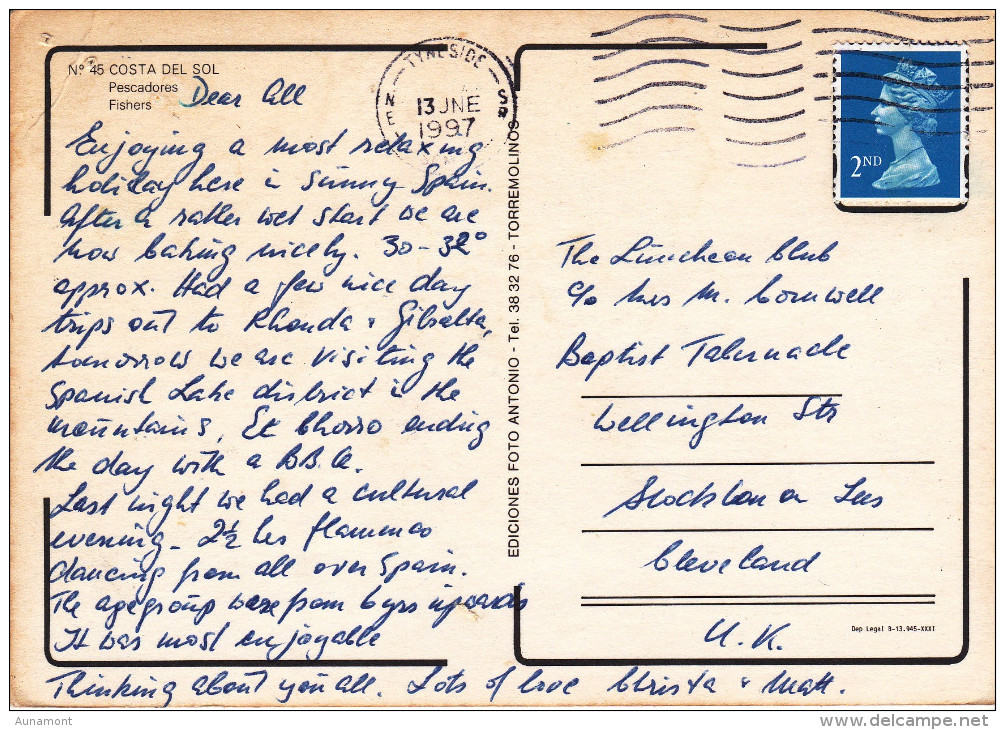 Nº 45 COSTA DEL SOL
Pescadores
Fishers
Dear All
Enjoying a most relaxing
holiday here in sunny Spain.
After a rather wet start we are
now baking nicely. 30-32°
approx. Had a few nice day
trips out to Rhonda & Gibralta,
tomorrow we are visiting the
Spanish Lake district in the
mountains, El Chorro ending
the day with a B.B.Q.
Last night we had a cultural
evening - 2½ hrs flamenco
dancing from all over Spain.
The age group were from 6yrs upwards
It was most enjoyable
Thinking about you all. Lots of love Christa & Matt.
EDICIONES FOTO ANTONIO - Tel. 38 32 76 - TORREMOLINOS
TYNESIDE
NE
SR
13 JNE
1997
2ND
The Luncheon Club
c/o Mrs M. Cornwell
Baptist Tabernacle
Wellington Str
Stockton on Tees
Cleveland
U.K.
Dep Legal B-13.945-XXXI
Aunamont
www.delcampe.net